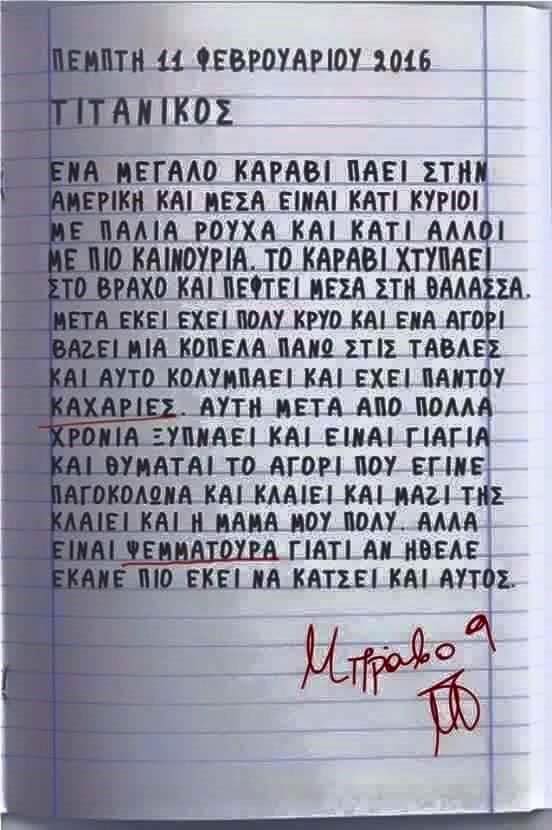 ΠΕΜΠΤΗ 11 ΦΕΒΡΟΥΑΡΙΟΥ 2016
ΤΙΤΑΝΙΚΟΣ
ΕΝΑ ΜΕΓΑΛΟ ΚΑΡΑΒΙ ΠΑΕΙ ΣΤΗΝ
ΑΜΕΡΙΚΗ ΚΑΙ ΜΕΣΑ ΕΙΝΑΙ ΚΑΤΙ ΚΥΡΙΟΙ
ΜΕ ΠΑΛΙΑ ΡΟΥΧΑ ΚΑΙ ΚΑΤΙ ΑΛΛΟΙ
ΜΕ ΠΙΟ ΚΑΙΝΟΥΡΙΑ. ΤΟ ΚΑΡΑΒΙ ΧΤΥΠΑΕΙ
ΣΤΟ ΒΡΑΧΟ ΚΑΙ ΠΕΦΤΕΙ ΜΕΣΑ ΣΤΗ ΘΑΛΑΣΣΑ.
ΜΕΤΑ ΕΚΕΙ ΕΧΕΙ ΠΟΛΥ ΚΡΥΟ ΚΑΙ ΕΝΑ ΑΓΟΡΙ
ΒΑΖΕΙ ΜΙΑ ΚΟΠΕΛΑ ΠΑΝΩ ΣΤΙΣ ΤΑΒΛΕΣ
ΚΑΙ ΑΥΤΟ ΚΟΛΥΜΠΑΕΙ ΚΑΙ ΕΧΕΙ ΠΑΝΤΟΥ
ΚΑΧΑΡΙΕΣ. ΑΥΤΗ ΜΕΤΑ ΑΠΟ ΠΟΛΛΑ
ΧΡΟΝΙΑ ΞΥΠΝΑΕΙ ΚΑΙ ΕΙΝΑΙ ΓΙΑΓΙΑ
ΚΑΙ ΘΥΜΑΤΑΙ ΤΟ ΑΓΟΡΙ ΠΟΥ ΕΓΙΝΕ
ΠΑΓΟΚΟΛΩΝΑ ΚΑΙ ΚΛΑΙΕΙ ΚΑΙ ΜΑΖΙ ΤΗΣ
ΚΛΑΙΕΙ ΚΑΙ Η ΜΑΜΑ ΜΟΥ ΠΟΛΥ. ΑΛΛΑ
ΕΙΝΑΙ ΨΕΜΜΑΤΟΥΡΑ ΓΙΑΤΙ ΑΝ ΗΘΕΛΕ
ΕΚΑΝΕ ΠΙΟ ΕΚΕΙ ΝΑ ΚΑΤΣΕΙ ΚΑΙ ΑΥΤΟΣ.
Μπράβο 9